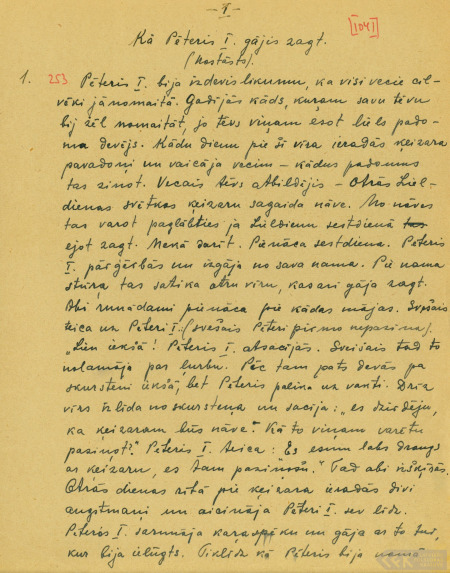 - 1 -
[1041]
Kā Pēteris I. gājis zagt.
(Nostāsts).
1. 253 Pēteris I. bija izdevis likumu, ka visi vecie cil-
vēki jānomaitā. Gadījās kāds, kuŗam savu tēvu
bij žēl nomaitāt, jo tēvs viņam esot liels pado-
ma devējs. Kādu dienu pie šī vīra ieradās ķeizara
pavadoņi un vaicāja vecim – kādus padomus
tas zinot. Vecais tēvs atbildējis – Otrās Liel-
dienas svētkos ķeizaru sagaida nāve. No nāves
tas varot paglābties ja Lieldienu sestdienā
ejot zagt. Nekā darīt. Pienāca sestdiena. Pēteris
I. pārģērbās un izgāja no sava nama. Pie nama
stūŗa tas satika otru vīru, kas arī gāja zagt.
Abi runādami pienāca pie kādas mājas. Svešais
teica uz Pēteri I. (svešais Pēteri pirmo nepazina).
„Lien iekšā! Pēteris I. atsacījās. Svešais tad to
nolamāja par ļurbu. Pēc tam pats devās pa
skursteni iekšā, bet Pēteris palika uz vakti. Drīz
vīrs izlīda no skursteņa un sacīja: „es dzirdēju,
ka ķeizaram būs nāve." Kā to viņam varētu
paziņot?" Pēteris I. teica: Es esmu labs draugs
ar ķeizaru, es tam paziņošu." Tad abi izšķīrās.
Otrās dienas rītā pie ķeizara ieradās divi
augstmaņi un aicināja Pēteri I. sev līdz.
Pēteris I. sarunāja karaspēku un gāja ar to tur,
kur bija ielūgts. Tiklīdz kā Pēteris bija namā